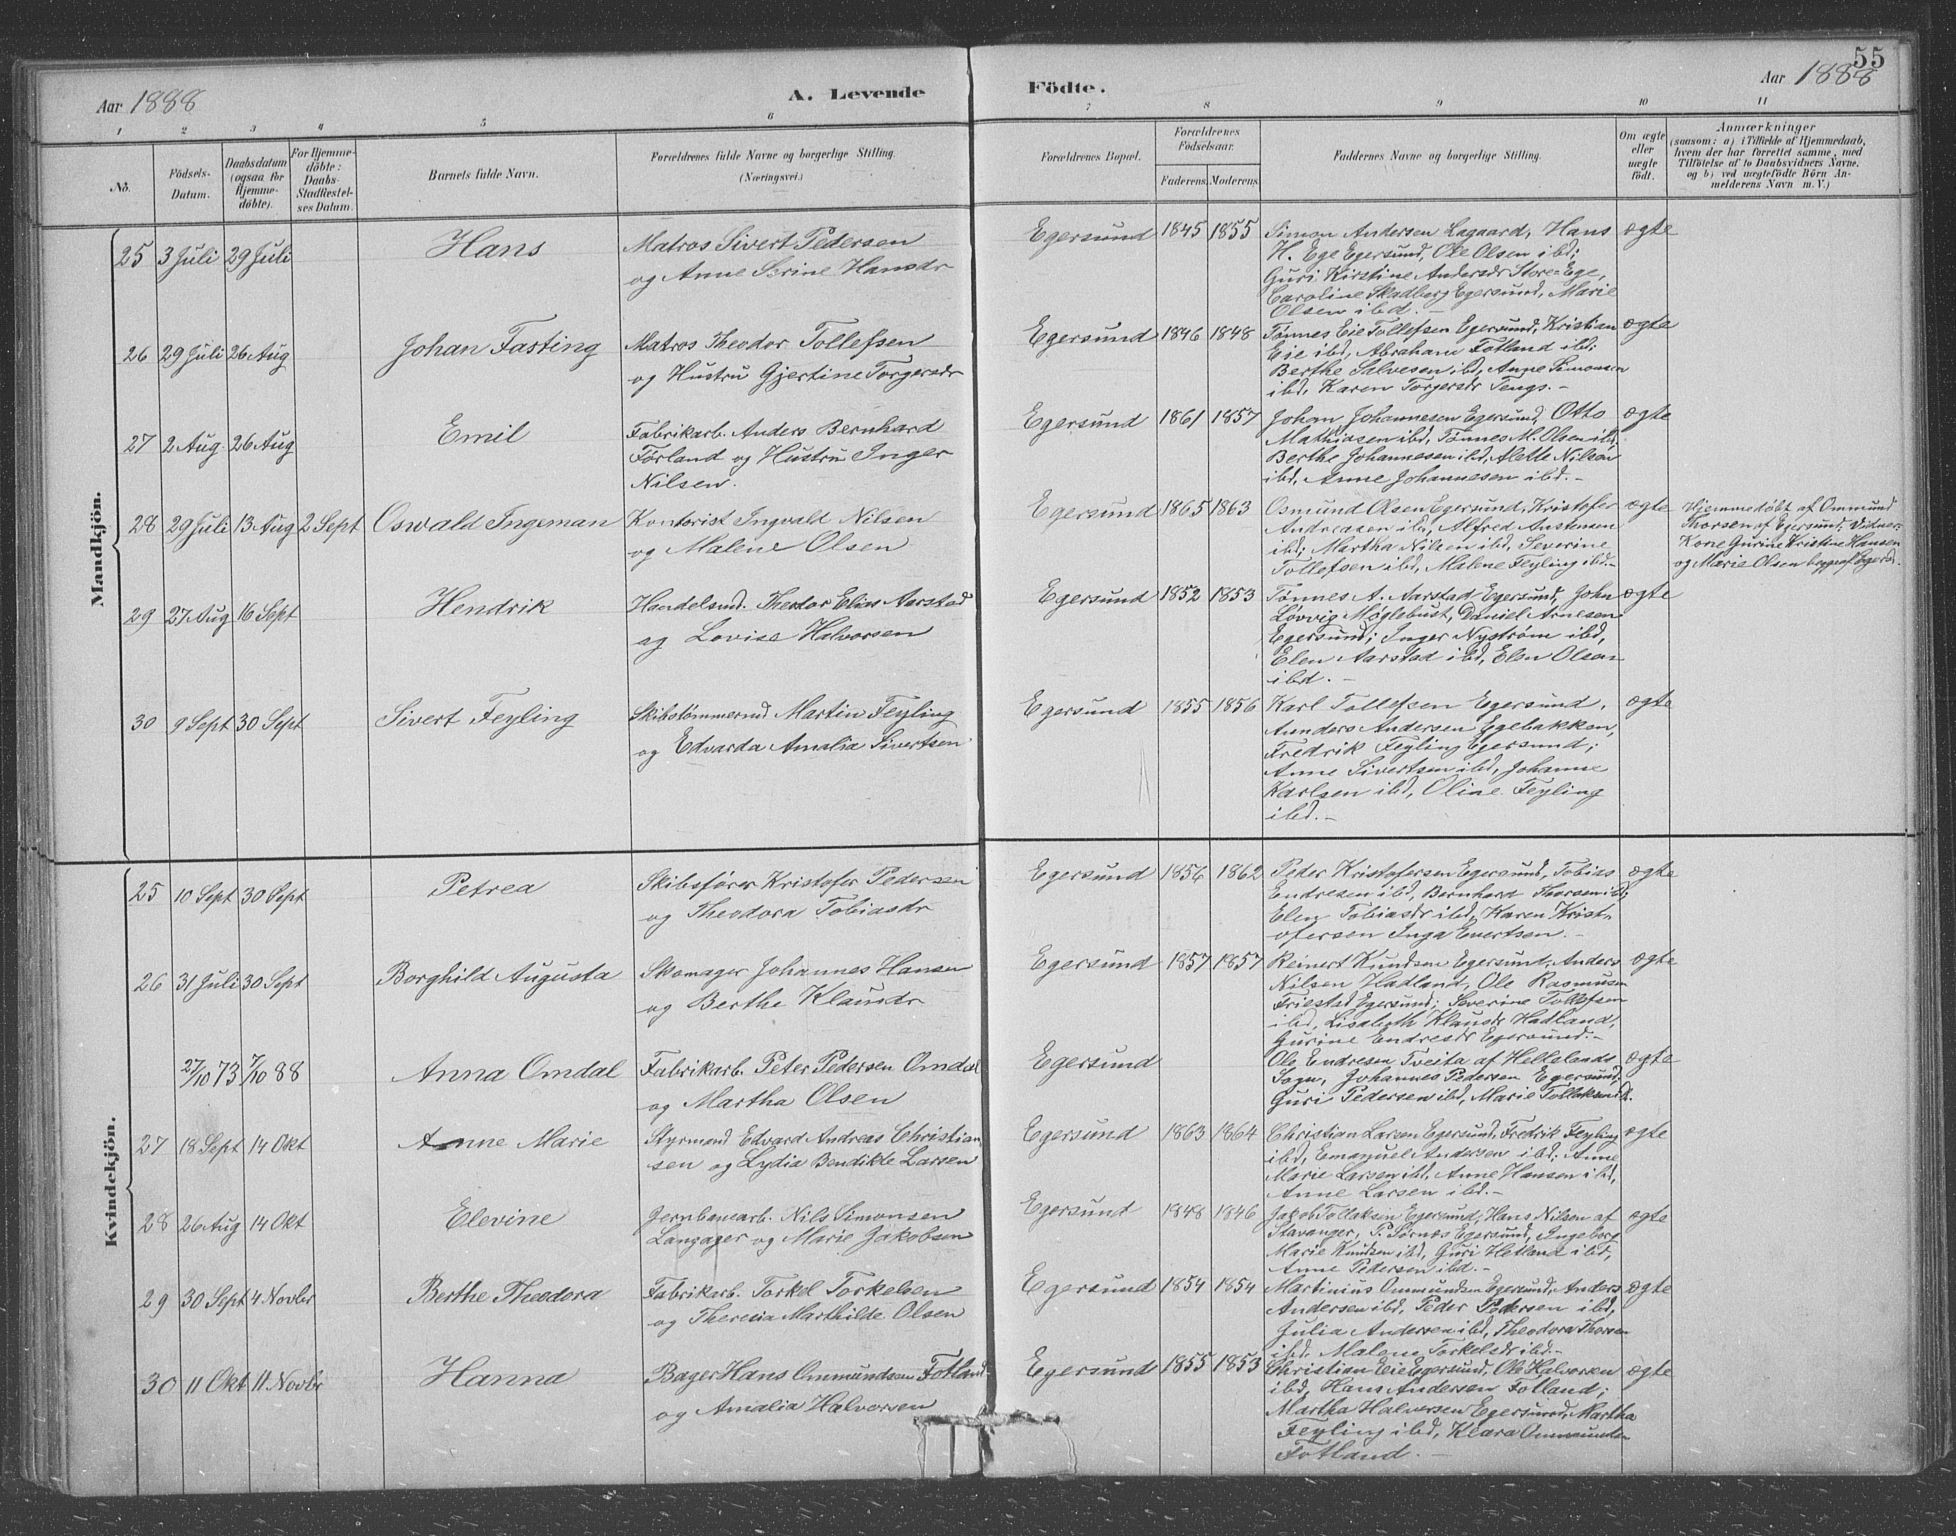 55
Aar 1888
A. Levende Födte.
Aar 1888
1 2 3 4 5 6 7 8 9 10 11
No.
Födsels-Datum.
Daabsdatum (ogsaa for Hjemme-döbte).
For Hjemme-döbte: Daabs-Stadfæstel-ses Datum.
Barnets fulde Navn.
Forældrenes fulde Navne og borgerlige Stilling. (Næringsvei.)
Forældrenes Bopæl.
Forældrenes Födselsaar.
Faderens. Moderens.
Faddernes Navne og borgerlige Stilling.
Om ægte eller uægte födt.
Anmærkninger
(saasom: a) i Tilfælde af Hjemmedaab,
hvem der har forrettet samme, med
Tilföielse af to Daabsvidners Navne,
og b) ved uægtefödte Börn An-
melderens Navn m. V.)
Mandkjön.
25 3 Juli 29 Juli Hans
Matros Sivert Pedersen
og Anne Serine Hansdr
Egersund 1845 1855
Simon Andersen Lagaard, Hans
H. Ege Egersund, Ole Olsen ibd;
Guri Kirstine Andersdr Store-Ege,
Caroline Skadberg Egersund, Marie
Olsen ibd. -
ægte
26 29 Juli 26 Aug Johan Fasting
Matros Theodor Tollefsen
og Hustru Gjertine Torgersdr
Egersund 1846 1848
Tønnes Eie Tollefsen Egersund, Kristian
Eie ibd, Abraham Fotland ibd;
Berthe Salvesen ibd, Anne Simonsen
ibd, Karen Torgersdr Tengs. -
ægte
27 2 Aug 26 Aug Emil
Fabrikarb. Anders Bernhard
Førland og Hustru Inger
Nilsen.
Egersund 1861 1857
Johan Johannesen Egersund, Otto
Mathiasen ibd, Tønnes M. Olsen ibd;
Berthe Johannesen ibd, Alette Nilsen
ibd, Anne Johannesen ibd. -
ægte
28 29 Juli 13 Aug 2 Sept Oswald Ingeman
Kontorist Ingvald Nilsen
og Malene Olsen
Egersund 1865 1863
Osmund Olsen Egersund, Kristofer
Andreasen ibd, Alfred Austensen
ibd; Martha Nilsen ibd, Severine
Tollefsen ibd, Malene Feyling ibd. -
ægte
Hjemmedøbt af Ommund
Thorsen af Egersund; Vidner:
Kone Gurine Kristine Hansen
og Marie Olsen begge af Egersd.
29 27 Aug 16 Sept Hendrik
Handelsmd. Theodor Elias Aarstad
og Lovise Halvorsen
Egersund 1852 1853
Tønnes A. Aarstad Egersund, John
Løvvig Møglebust, Daniel Arnesen
Egersund; Inger Nystrøm ibd,
Elen Aarstad ibd, Elen Olsen
ibd. -
ægte
30 9 Sept 30 Sept Sivert Feyling
Skibstømmermd. Martin Feyling
og Edvarda Amalia Sivertsen
Egersund 1855 1856
Karl Tollefsen Egersund,
Anders Andersen Egebakken,
Fredrik Feyling Egersund;
Anne Sivertsen ibd, Johanne
Karlsen ibd, Oline Feyling
ibd. -
ægte
Kvindekjön.
25 10 Sept 30 Sept Petrea
Skibsfører Kristofer Pedersen
og Theodora Tobiasdr
Egersund 1856 1862
Peder Kristofersen Egersund, Tobias
Endresen ibd, Bernhard Thorsen ibd;
Elen Tobiasdr ibd, Karen Krist-
ofersen Inga Evertsen. -
ægte
26 31 Juli 30 Sept Borghild Augusta
Skomager Johannes Hansen
og Berthe Klausdr
Egersund 1857 1857
Reinert Knudsen Egersund, Anders
Nilsen Hadland, Ole Rasmusen
Friestad Egersund; Severine Tollefsen
ibd, Lisabeth Klausdr Hadland,
Gurine Endresdr Egersund. -
ægte
27/10 73 7/10 88 Anna Omdal
Fabrikarb. Peter Pedersen Omdal
og Martha Olsen
Egersund
Ole Endresen Tveita af Hellelands
Sogn, Johannes Pedersen Egersund;
Guri Pedersen ibd, Marie Tollaksen ibd.
ægte
27 18 Sept 14 Okt Anne Marie
Styrmand Edvard Andreas Christian-
sen og Lydia Bendikte Larsen
Egersund 1863 1864
Christian Larsen Egersund, Fredrik Feyling
ibd, Emanuel Andersen ibd; Anne
Marie Larsen ibd, Anne Hansen ibd,
Anne Larsen ibd. -
ægte
28 26 Aug 14 Okt Elevine
Jernbanearb. Nils Simonsen
Langager og Marie Jakobsen
Egersund 1848 1846
Jakob Tollaksen Egersund, Hans Nilsen af
Stavanger, P. Sørnes Egersund, Ingeborg
Marie Knudsen ibd, Guri Hetland ibd,
Anne Pedersen ibd. -
ægte
29 30 Sept 4 Novbr Berthe Theodora
Fabrikarb. Torkel Torkelsen
og Theresia Marthilde Olsen
Egersund 1854 1854
Martinius Ommundsen Egersund, Anders
Andersen ibd, Peder Pedersen ibd,
Julia Andersen ibd, Theodora Thorsen
ibd, Malene Torkelsdr ibd. -
ægte
30 11 Okt 11 Novbr Hanna
Bager Hans Ommundsen Fotland
og Amalia Halvorsen
Egersund 1855 1853
Christian Eie Egersund, Ole Halvorsen
ibd, Hans Andersen Fotland;
Martha Halvorsen Egersund, Martha
Feyling ibd, Klara Ommundsen
Fotland. -
ægte